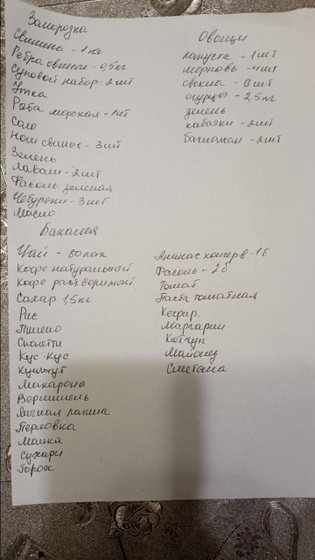 Заморозка
Свинина - 1 кг
Ребра свиные - 0,5 кг
Суповой набор - 2 шт
Утка
Рыба морская - 1 шт
Сало
Ноги свиные - 3 шт
Зелень
Лаваш - 2 шт
Фасоль зеленая
Чебуреки - 3 шт
Масло
Овощи
капуста - 1 шт
морковь - 4 шт
свекла - 6 шт
огурцы - 2,5 кг
зелень
кабачки - 2 шт
баклажан - 2 шт
Бакалея
Чай -
Кофе натуральный
Кофе растворимый
Сахар 1,5 кг
Рис
Пшено
Спагетти
Кус-Кус
Кунжут
Макароны
Вермишель
Яичная лапша
Перловка
Манка
Сухари
Горох
Ананас консерв. 1б
Фасоль - 2б
Томат
Паста томатная
Кефир.
Маргарин
Кетчуп
Майонез
Сметана